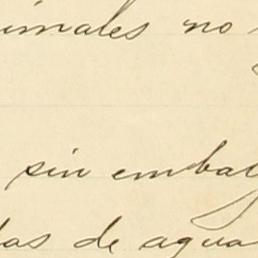 nimales no
sin embag
das de agua